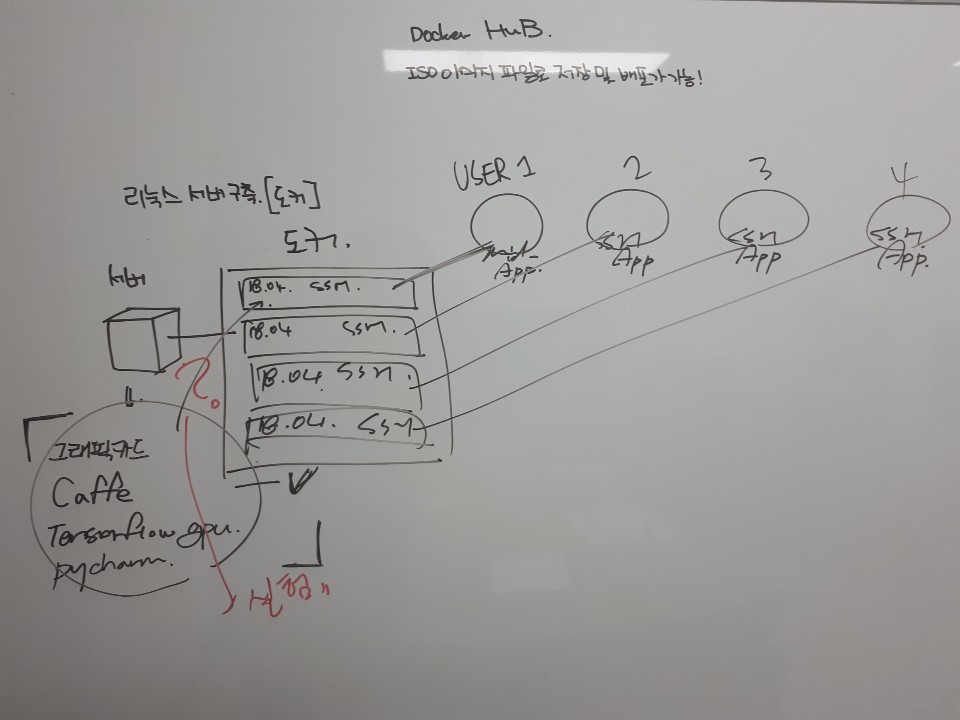 Docker HuB.
ISO 이미지 파일로 저장 및 배포가 가능!
리눅스 서버구축.[도커]
USER 1
2
3
4
도커.
SSM
App
SSM
App
SSM.
App.
App.
서버
18.04. SSM.
18.04 SSM.
18.04. SSM.
18.04. SSM
?
그래픽카드
Caffe
Tensorflow gpu.
pycharm.